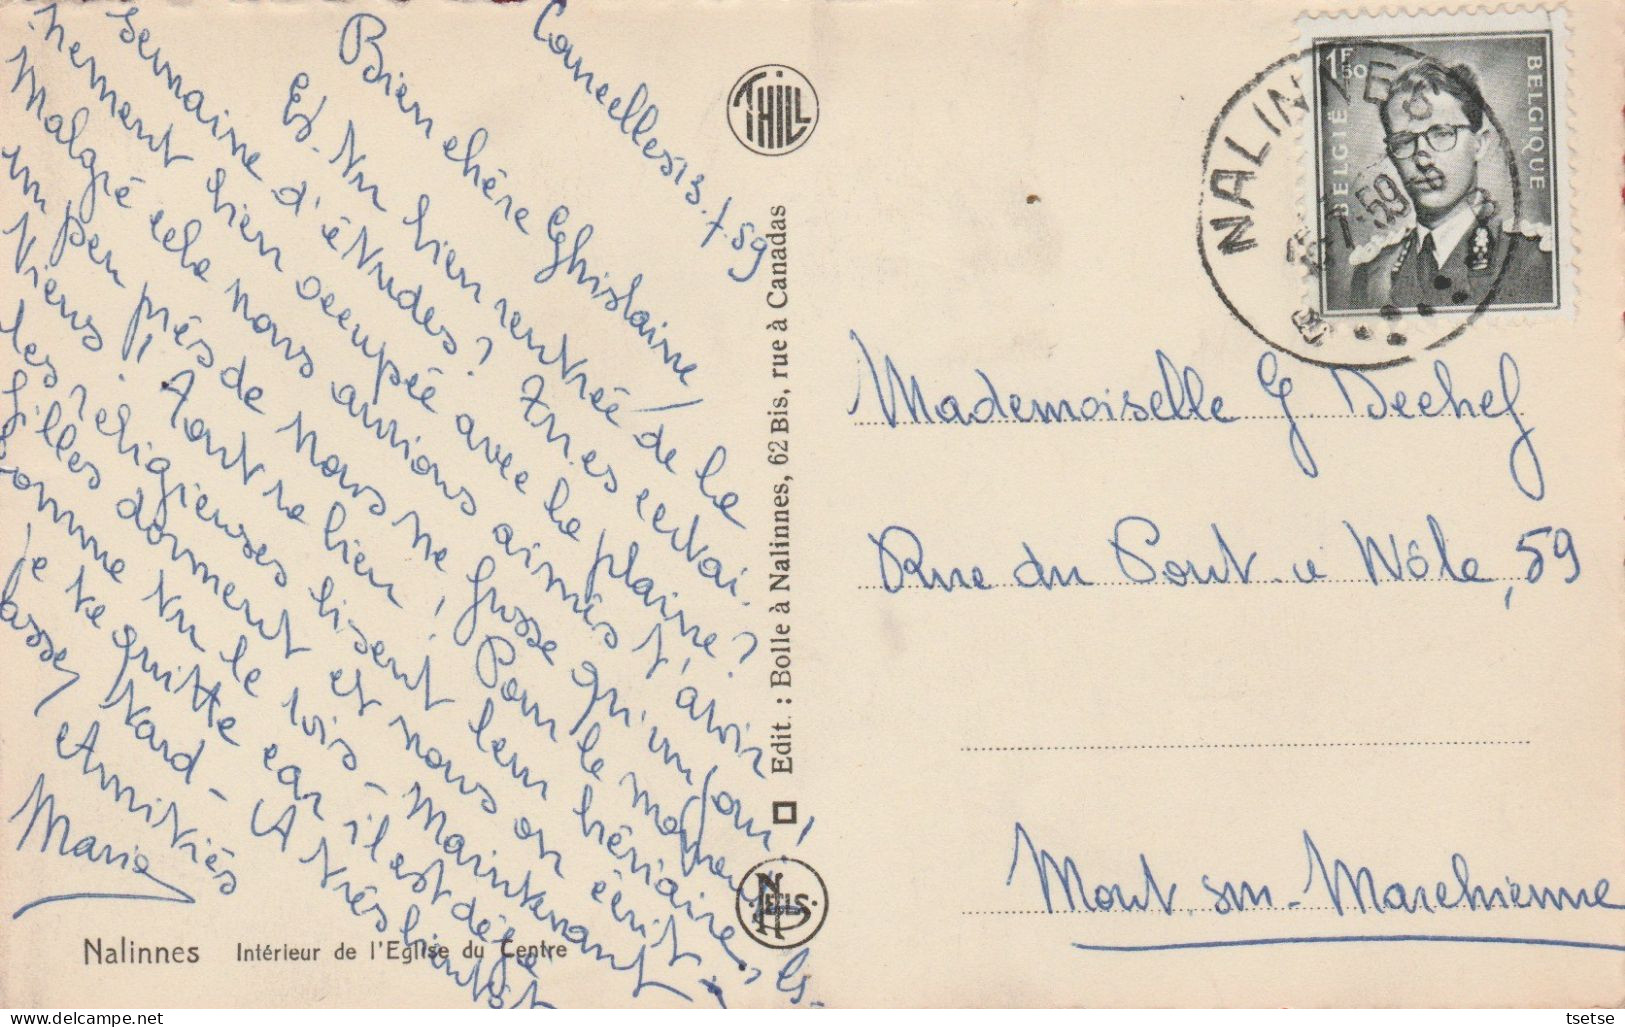 Courcelles 13.7.59
Bien chère Ghislaine,
Es-tu bien rentrée de la
semaine d'études? Tu es certai-
nement bien occupée avec la plaine?
Malgré cela nous aurions aimés t'avoir
un peu près de nous ne fusse qu'un jour!
Viens! Août va bien! Pour le moment
les religieuses lisent leur bréviaire,
filles dorment et nous on écrit
comme tu le vois. Maintenant
je te quitte car il est déjà
assez tard - A très bientôt
Amitiés
Marie
THILL
Edit. : Bolle à Nalinnes, 62 Bis, rue à Canadas
NELS
Nalinnes Intérieur de l'Eglise du Centre
1F50
BELGIË BELGIQUE
NALINNES
Mademoiselle G Dechef
Rue du Pont-à-Nôle, 59
Mont-sur-Marchienne
delcampe.net
tsetse